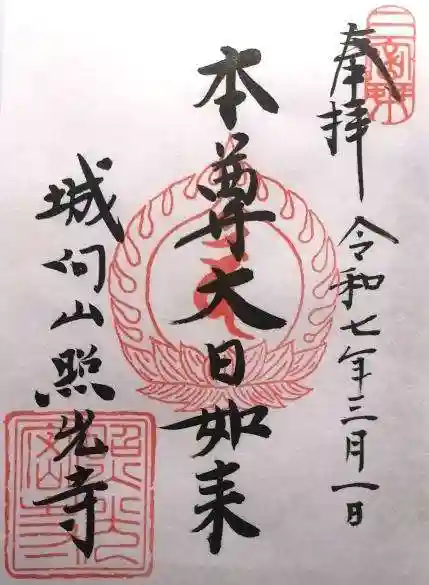 奉拝
令和七年三月一日
本尊大日如来
城向山照光寺